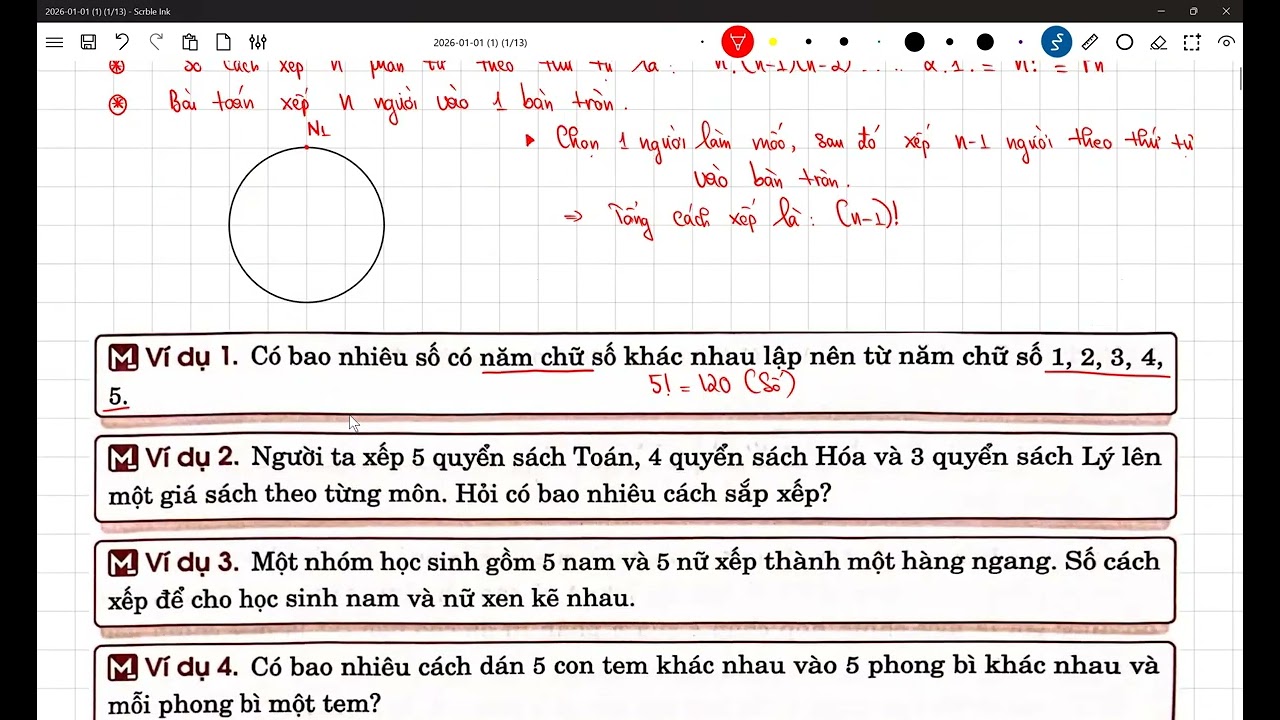 2026-01-01 (1) (1/13) - Scrble Ink
2026-01-01 (1) (1/13)
Số cách xếp n phần tử theo thứ tự là :
Bài toán xếp n người vào 1 bàn tròn.
N1
Chọn 1 người làm mốc, sau đó xếp n-1 người theo thứ tự
vào bàn tròn.
⇒ Tổng cách xếp là : (n-1)!
Ví dụ 1. Có bao nhiêu số có năm chữ số khác nhau lập nên từ năm chữ số 1, 2, 3, 4,
5.
5! = 120 (Số)
Ví dụ 2. Người ta xếp 5 quyển sách Toán, 4 quyển sách Hóa và 3 quyển sách Lý lên
một giá sách theo từng môn. Hỏi có bao nhiêu cách sắp xếp?
Ví dụ 3. Một nhóm học sinh gồm 5 nam và 5 nữ xếp thành một hàng ngang. Số cách
xếp để cho học sinh nam và nữ xen kẽ nhau.
Ví dụ 4. Có bao nhiêu cách dán 5 con tem khác nhau vào 5 phong bì khác nhau và
mỗi phong bì một tem?